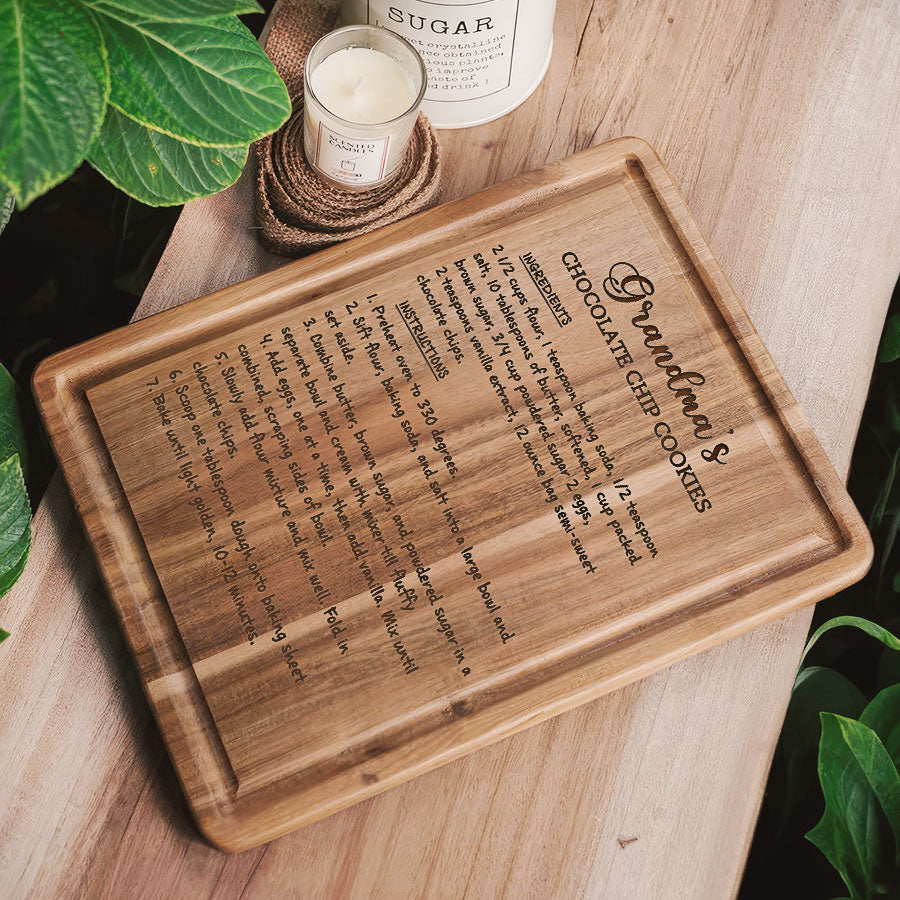 SUGAR
crystalline
obtained
plants.
to improve
taste of
drink !
SCENTED
CANDLES
Grandma's
CHOCOLATE CHIP COOKIES
INGREDIENTS
2 1/2 cups flour, 1 teaspoon baking soda, 1/2 teaspoon
salt, 10 tablespoons of butter, softened, 1 cup packed
brown sugar, 3/4 cup powdered sugar 2 eggs,
2 teaspoons vanilla extract, 12 ounce bag semi-sweet
chocolate chips.
INSTRUCTIONS
1. Preheat oven to 330 degrees.
2. Sift flour, baking soda, and salt into a large bowl and
set aside.
3. Combine butter, brown sugar, and powdered sugar in a
separate bowl and cream with mixer till fluffy
4. Add eggs, one at a time, then add vanilla. Mix until
combined, scraping sides of bowl.
5. Slowly add flour mixture and mix well. Fold in
chocolate chips.
6. Scoop one tablespoon dough onto baking sheet
7. Bake until light golden, 10-12 minurtes.